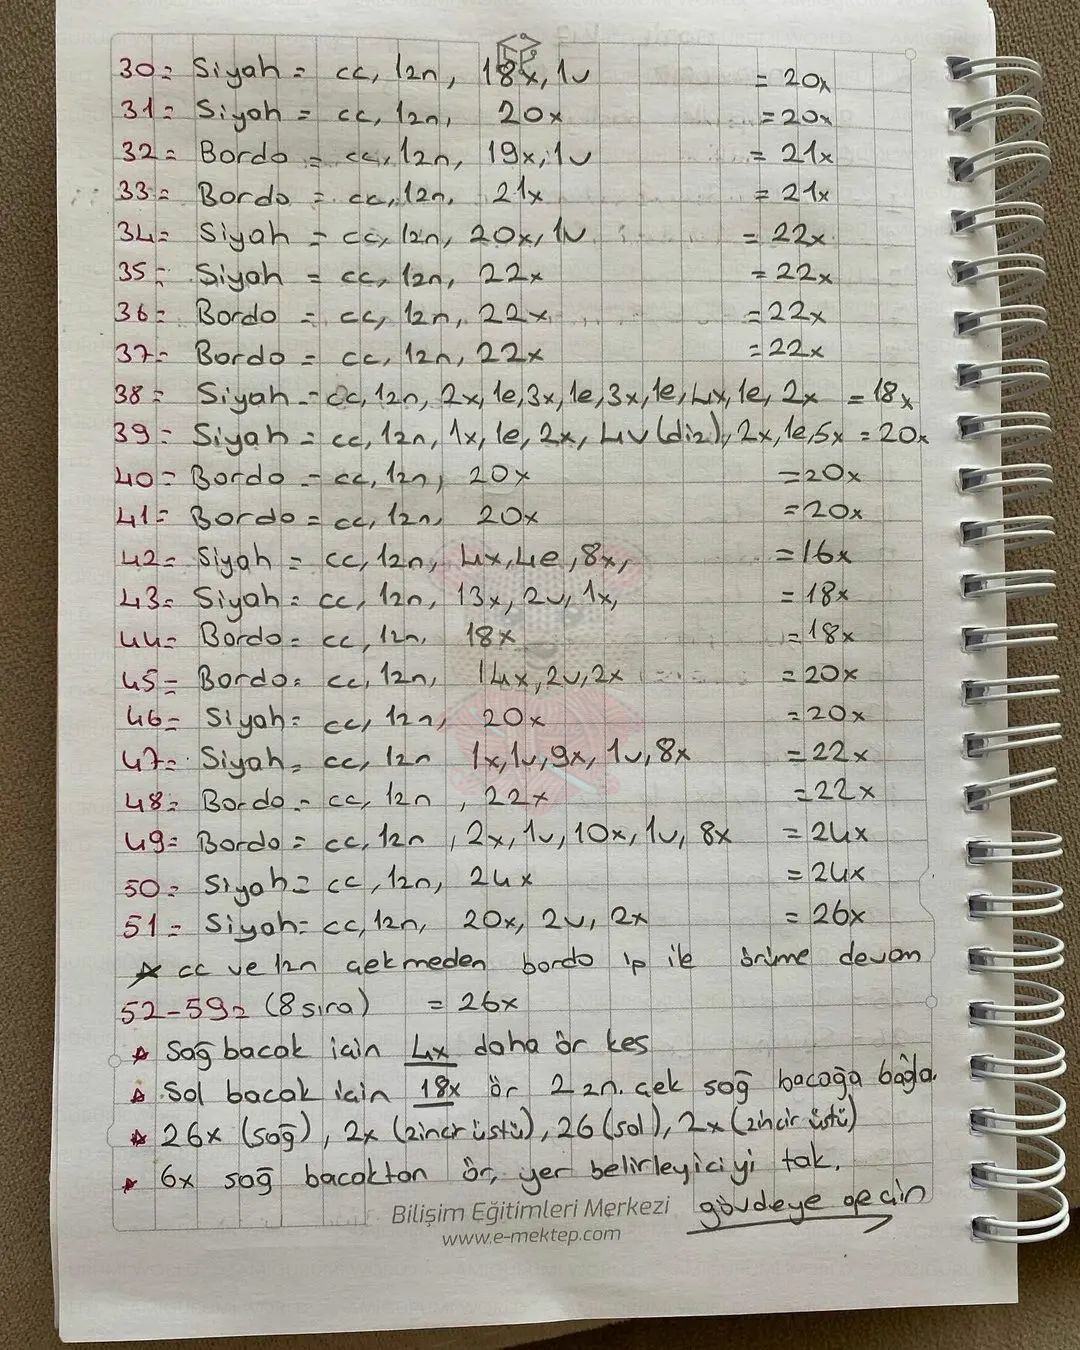 30= Siyah = cc, 12n, 18x, 1v = 20x
31= Siyah = cc, 12n, 20x = 20x
32= Bordo = cc, 12n, 19x, 1v = 21x
33= Bordo = cc, 12n, 21x = 21x
34= Siyah = cc, 12n, 20x, 1v = 22x
35= Siyah = cc, 12n, 22x = 22x
36= Bordo = cc, 12n, 22x = 22x
37= Bordo = cc, 12n, 22x = 22x
38= Siyah = cc, 12n, 2x, 1e, 3x, 1e, 3x, 1e, 4x, 1e, 2x = 18x
39= Siyah = cc, 12n, 1x, 1e, 2x, 4v (diz), 2x, 1e, 5x = 20x
40= Bordo = cc, 12n, 20x = 20x
41= Bordo = cc, 12n, 20x = 20x
42= Siyah = cc, 12n, 4x, 4e, 8x, = 16x
43= Siyah = cc, 12n, 13x, 2v, 1x, = 18x
44= Bordo = cc, 12n, 18x = 18x
45= Bordo = cc, 12n, 14x, 2v, 2x = 20x
46= Siyah = cc, 12n, 20x = 20x
47= Siyah = cc, 12n 1x, 1v, 9x, 1v, 8x = 22x
48= Bordo = cc, 12n, 22x = 22x
49= Bordo = cc, 12n, 2x, 1v, 10x, 1v, 8x = 24x
50= Siyah = cc, 12n, 24x = 24x
51= Siyah = cc, 12n, 20x, 2v, 2x = 26x
cc ve 12n çekmeden bordo ip ile örüme devam
52-59= (8 sıra) = 26x
Sağ bacak için 4x daha ör kes
Sol bacak için 18x ör 2 zn. çek sağ bacağa bağla.
26x (sağ), 2x (zincir üstü), 26 (sol), 2x (zincir üstü)
6x sağ bacaktan ör, yer belirleyiciyi tak.
gövdeye geçin
Bilişim Eğitimleri Merkezi
www.e-mektep.com